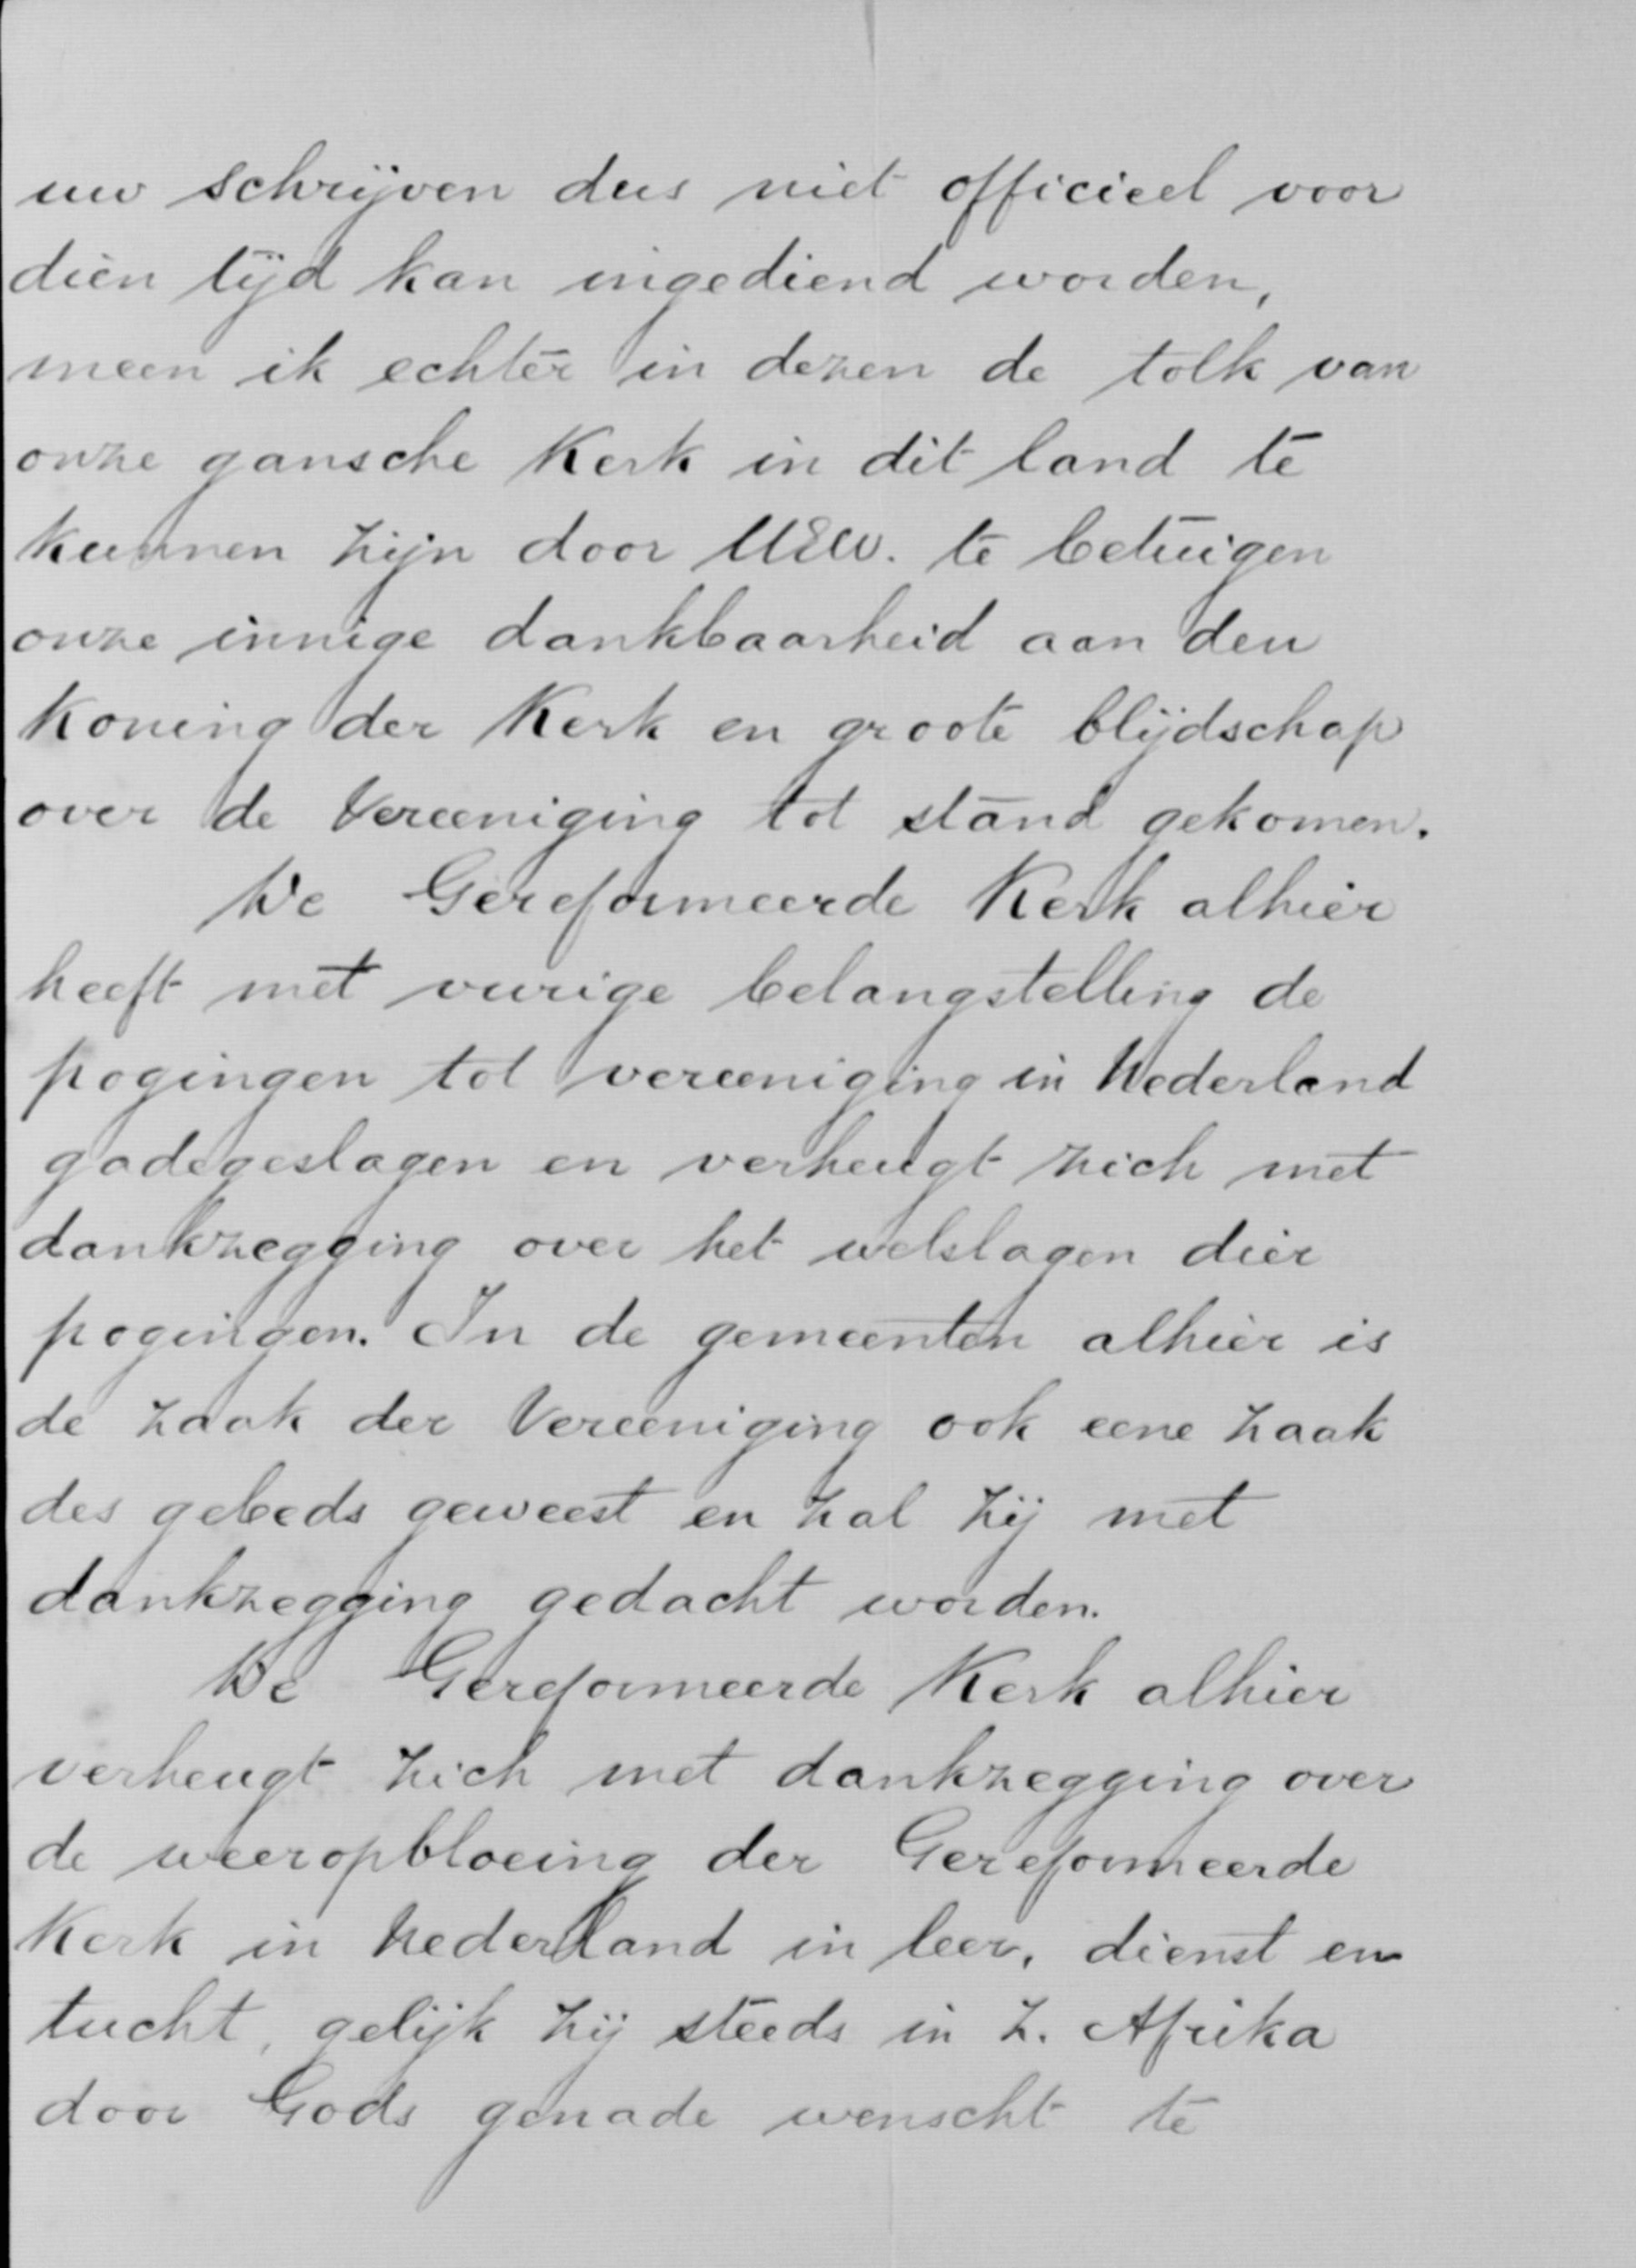 uw schrijven dus niet officieel voor
dien tijd kan ingediend worden,
meen ik echter in dezen de tolk van
onze gansche Kerk in dit land te
kunnen zijn door UEW. te betuigen
onze innige dankbaarheid aan den
Koning der Kerk en groote blijdschap
over de Vereeniging tot stand gekomen.
De Gereformeerde Kerk alhier
heeft met vurige belangstelling de
pogingen tot vereeniging in Nederland
gadegeslagen en verheugt zich met
dankzegging over het welslagen dier
pogingen. In de gemeenten alhier is
de zaak der Vereeniging ook eene zaak
des gebeds geweest en zal zij met
dankzegging gedacht worden.
De Gereformeerde Kerk alhier
verheugt zich met dankzegging over
de weeropbloeing der Gereformeerde
Kerk in Nederland in leer, dienst en
tucht, gelijk zij steeds in Z. Afrika
door Gods genade wenscht te